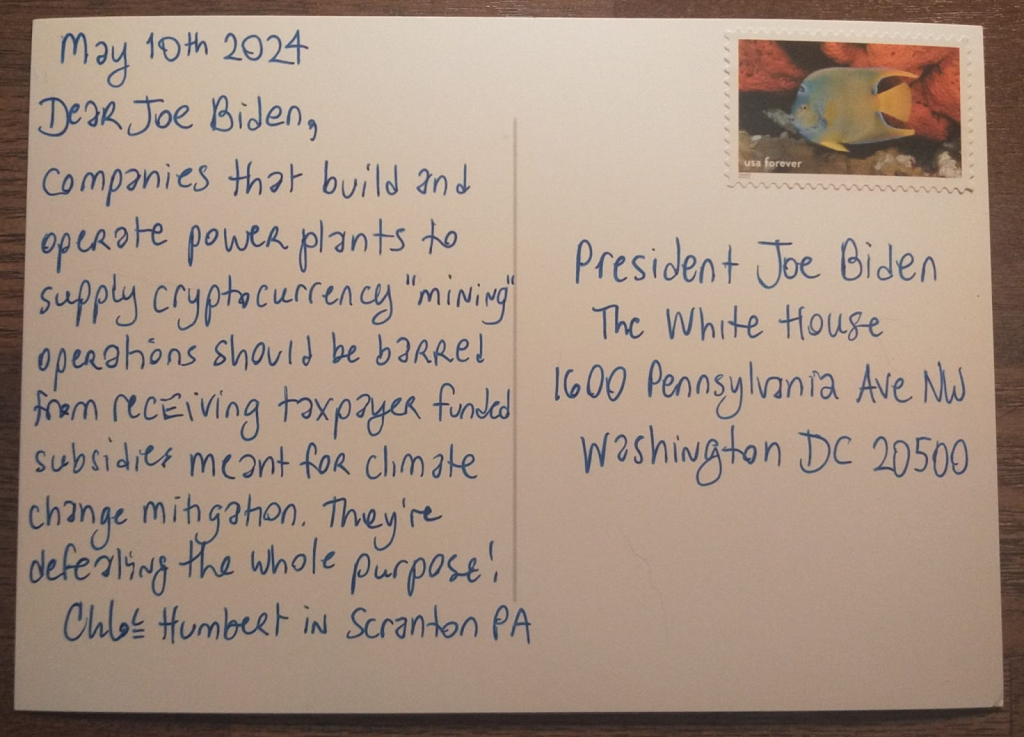 May 10th 2024
Dear Joe Biden,
companies that build and
operate power plants to
supply cryptocurrency "mining"
operations should be barred
from receiving taxpayer funded
subsidies meant for climate
change mitigation. They're
defeating the whole purpose!
Chloe Humbert in Scranton PA
usa forever
President Joe Biden
The White House
1600 Pennsylvania Ave NW
Washington DC 20500